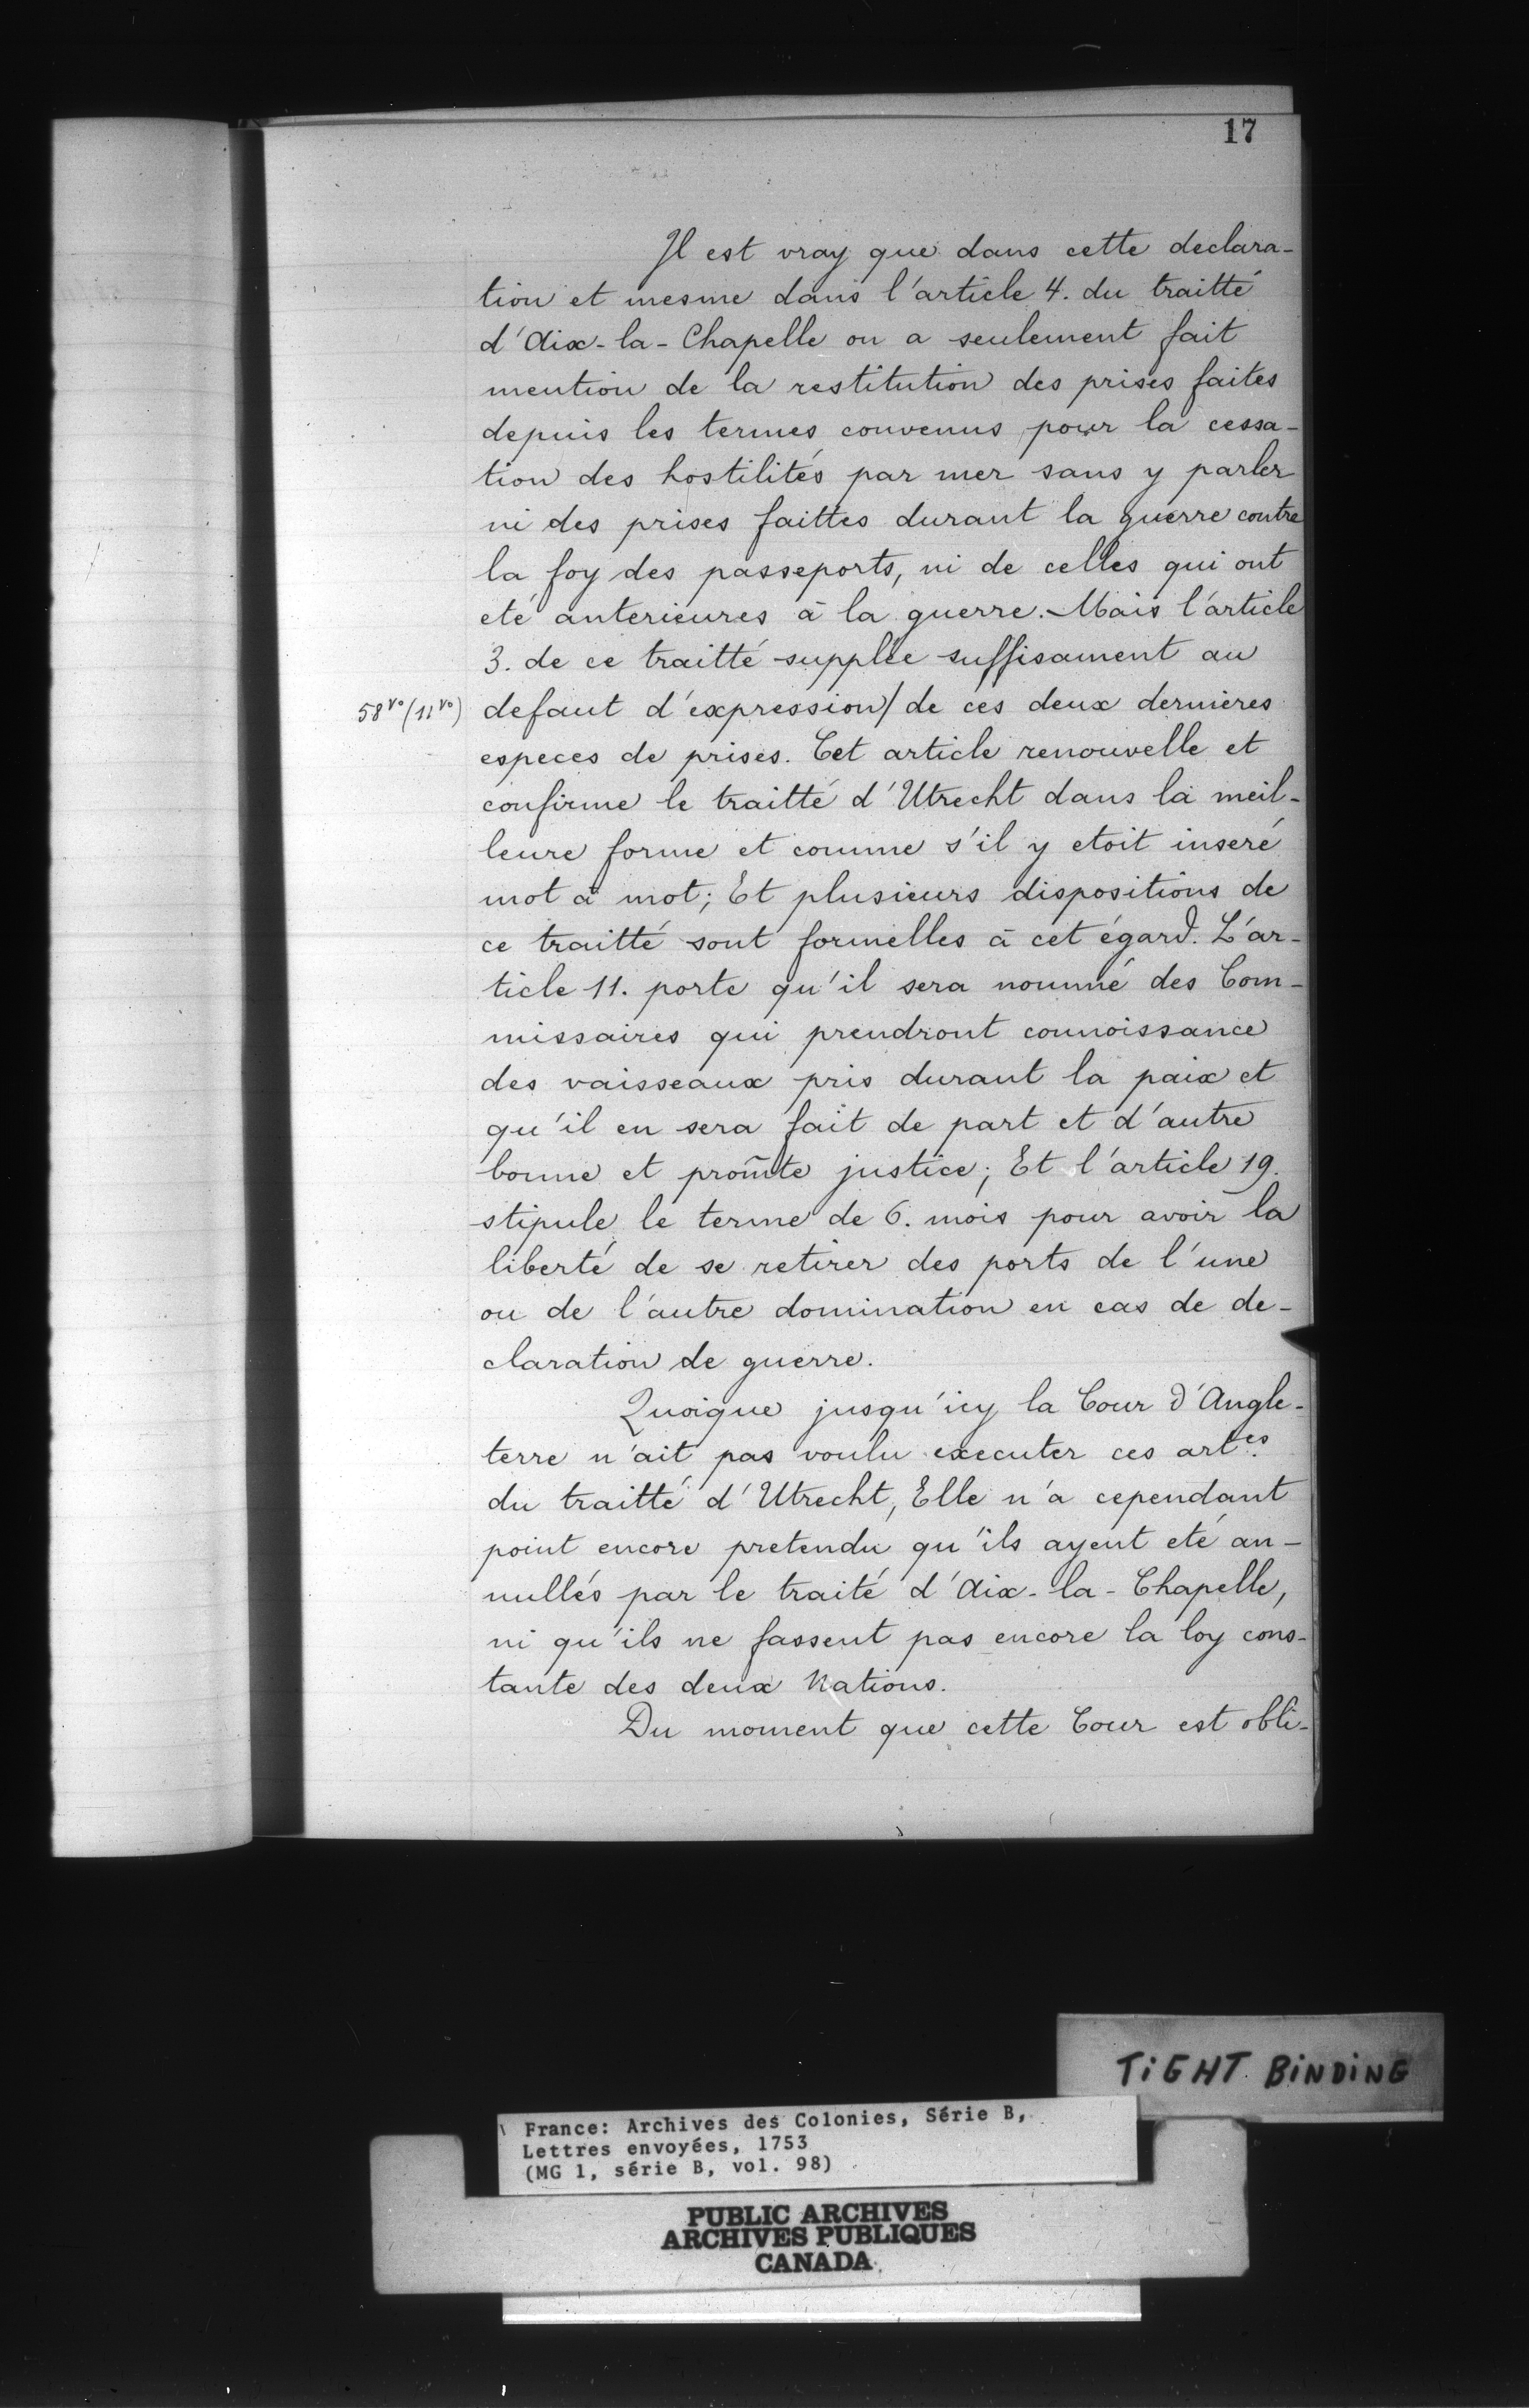 17
Il est vray que dans cette declara-
tion et mesme dans l'article 4. du traitté
d'Aix-la-Chapelle on a seulement fait
mention de la restitution des prises faites
depuis les termes convenus pour la cessa-
tion des hostilités par mer sans y parler
ni des prises faittes durant la guerre contre
la foy des passeports, ni de celles qui ont
eté anterieures à la guerre. Mais l'article
3. de ce traitté supplée suffisament au
58vo (11vo) defaut d'expression/ de ces deux dernières
especes de prises. Cet article renouvelle et
confirme le traitté d'Utrecht dans la meil-
leure forme et comme s'il y etoit inseré
mot à mot; Et plusieurs dispositions de
ce traitté sont formelles à cet égard. L'ar-
ticle 11. porte qu'il sera nommé des Com-
missaires qui prendront connoissance
des vaisseaux pris durant la paix et
qu'il en sera fait de part et d'autre
bonne et prom̃te justice; Et l'article 19.
stipule le terme de 6. mois pour avoir la
liberté de se retirer des ports de l'une
ou de l'autre domination en cas de de-
claration de guerre.
Quoique jusqu'icy la Cour d'Angle-
terre n'ait pas voulu executer ces artes.
du traitté d'Utrecht, Elle n'a cependant
point encore pretendu qu'ils ayent eté an-
nullés par le traité d'Aix-la-Chapelle,
ni qu'ils ne fassent pas encore la loy cons-
tante des deux Nations.
Du moment que cette Cour est obli-
TIGHT BINDING
France: Archives des Colonies, Série B,
Lettres envoyées, 1753
(MG 1, série B, vol. 98)
PUBLIC ARCHIVES
ARCHIVES PUBLIQUES
CANADA